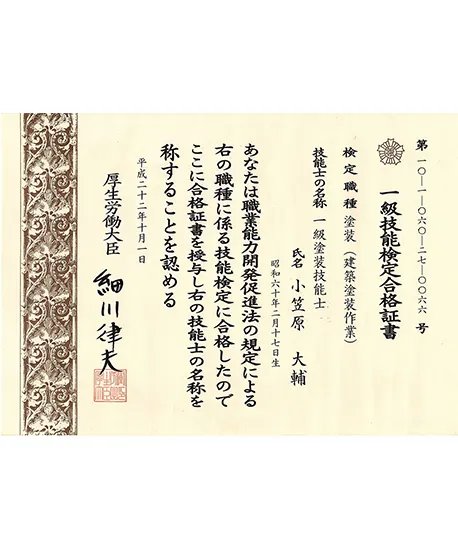 第一〇―一―〇六〇―二七―〇〇六六号
一級技能検定合格証書
検定職種 塗装(建築塗装作業)
技能士の名称 一級塗装技能士
氏名 小笠原 大輔
昭和六十年二月十七日生
あなたは職業能力開発促進法の規定による
右の職種に係る技能検定に合格したので
ここに合格証書を授与し右の技能士の名称を
称することを認める
平成二十二年十月一日
厚生労働大臣
細川律夫